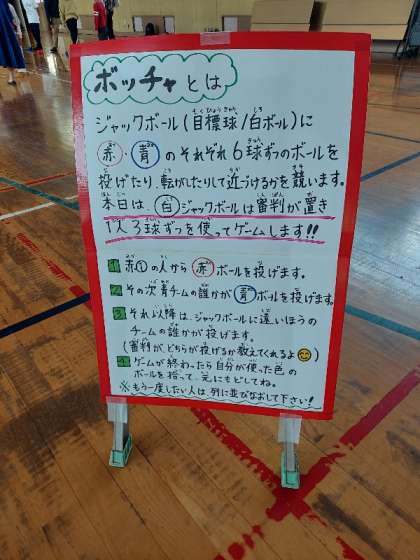 ボッチャとは
ジャックボール(目標球/白ボール)に
赤・青のそれぞれ6球ずつのボールを
投げたり、転がしたりして近づけるかを競います。
本日は、白ジャックボールは審判が置き
1人3球ずつを使ってゲームします!!
1 赤①の人から赤ボールを投げます。
2 その次青チームの誰かが青ボールを投げます。
3 それ以降は、ジャックボールに遠いほうの
チームの誰かが投げます。
(審判が、どちらが投げるか教えてくれるよ😊)
4 ゲームが終わったら自分が使った色の
ボールを拾って、元にもどしてね。
※もう一度したい人は、列に並びなおして下さい!